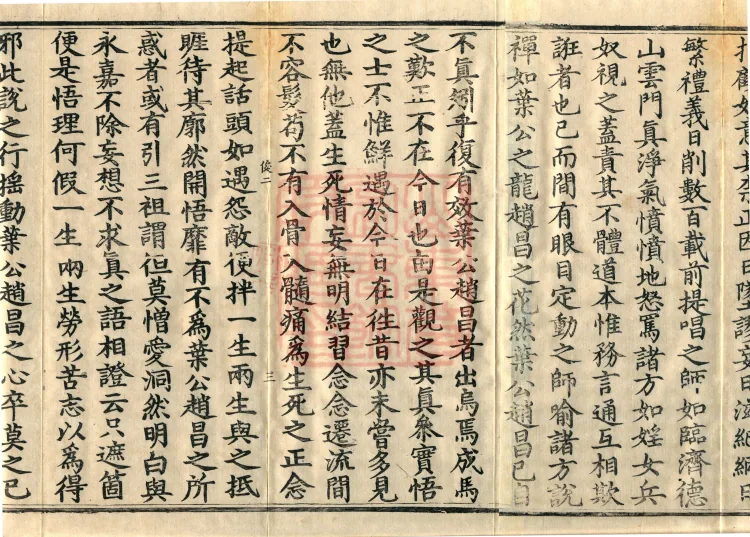 繁禮義日削數百載前提唱之師如臨濟德
山雲門真淨氣憤憤地怒罵諸方如婬女兵
奴視之蓋責其不體道本惟務言通互相欺
誑者也已而間有眼目定動之師喻諸方說
禪如葉公之龍趙昌之花然葉公趙昌已自
不真矧乎復有效葉公趙昌者出烏焉成馬
之歎正不在今日也由是觀之其真叅實悟
之士不惟鮮遇於今日在徃昔亦未甞多見
也無他蓋生死情妄無明結習念念遷流間
不容髮苟不有入骨入髓痛為生死之正念
俊二
三
提起話頭如遇怨敵便拌一生兩生與之抵
睚待其廓然開悟靡有不為葉公趙昌之所
惑者或有引三祖謂但莫憎愛洞然明白與
永嘉不除妄想不求真之語相證云只遮箇
便是悟理何假一生兩生勞形苦志以為得
邪此說之行揺動葉公趙昌之心卒莫之已